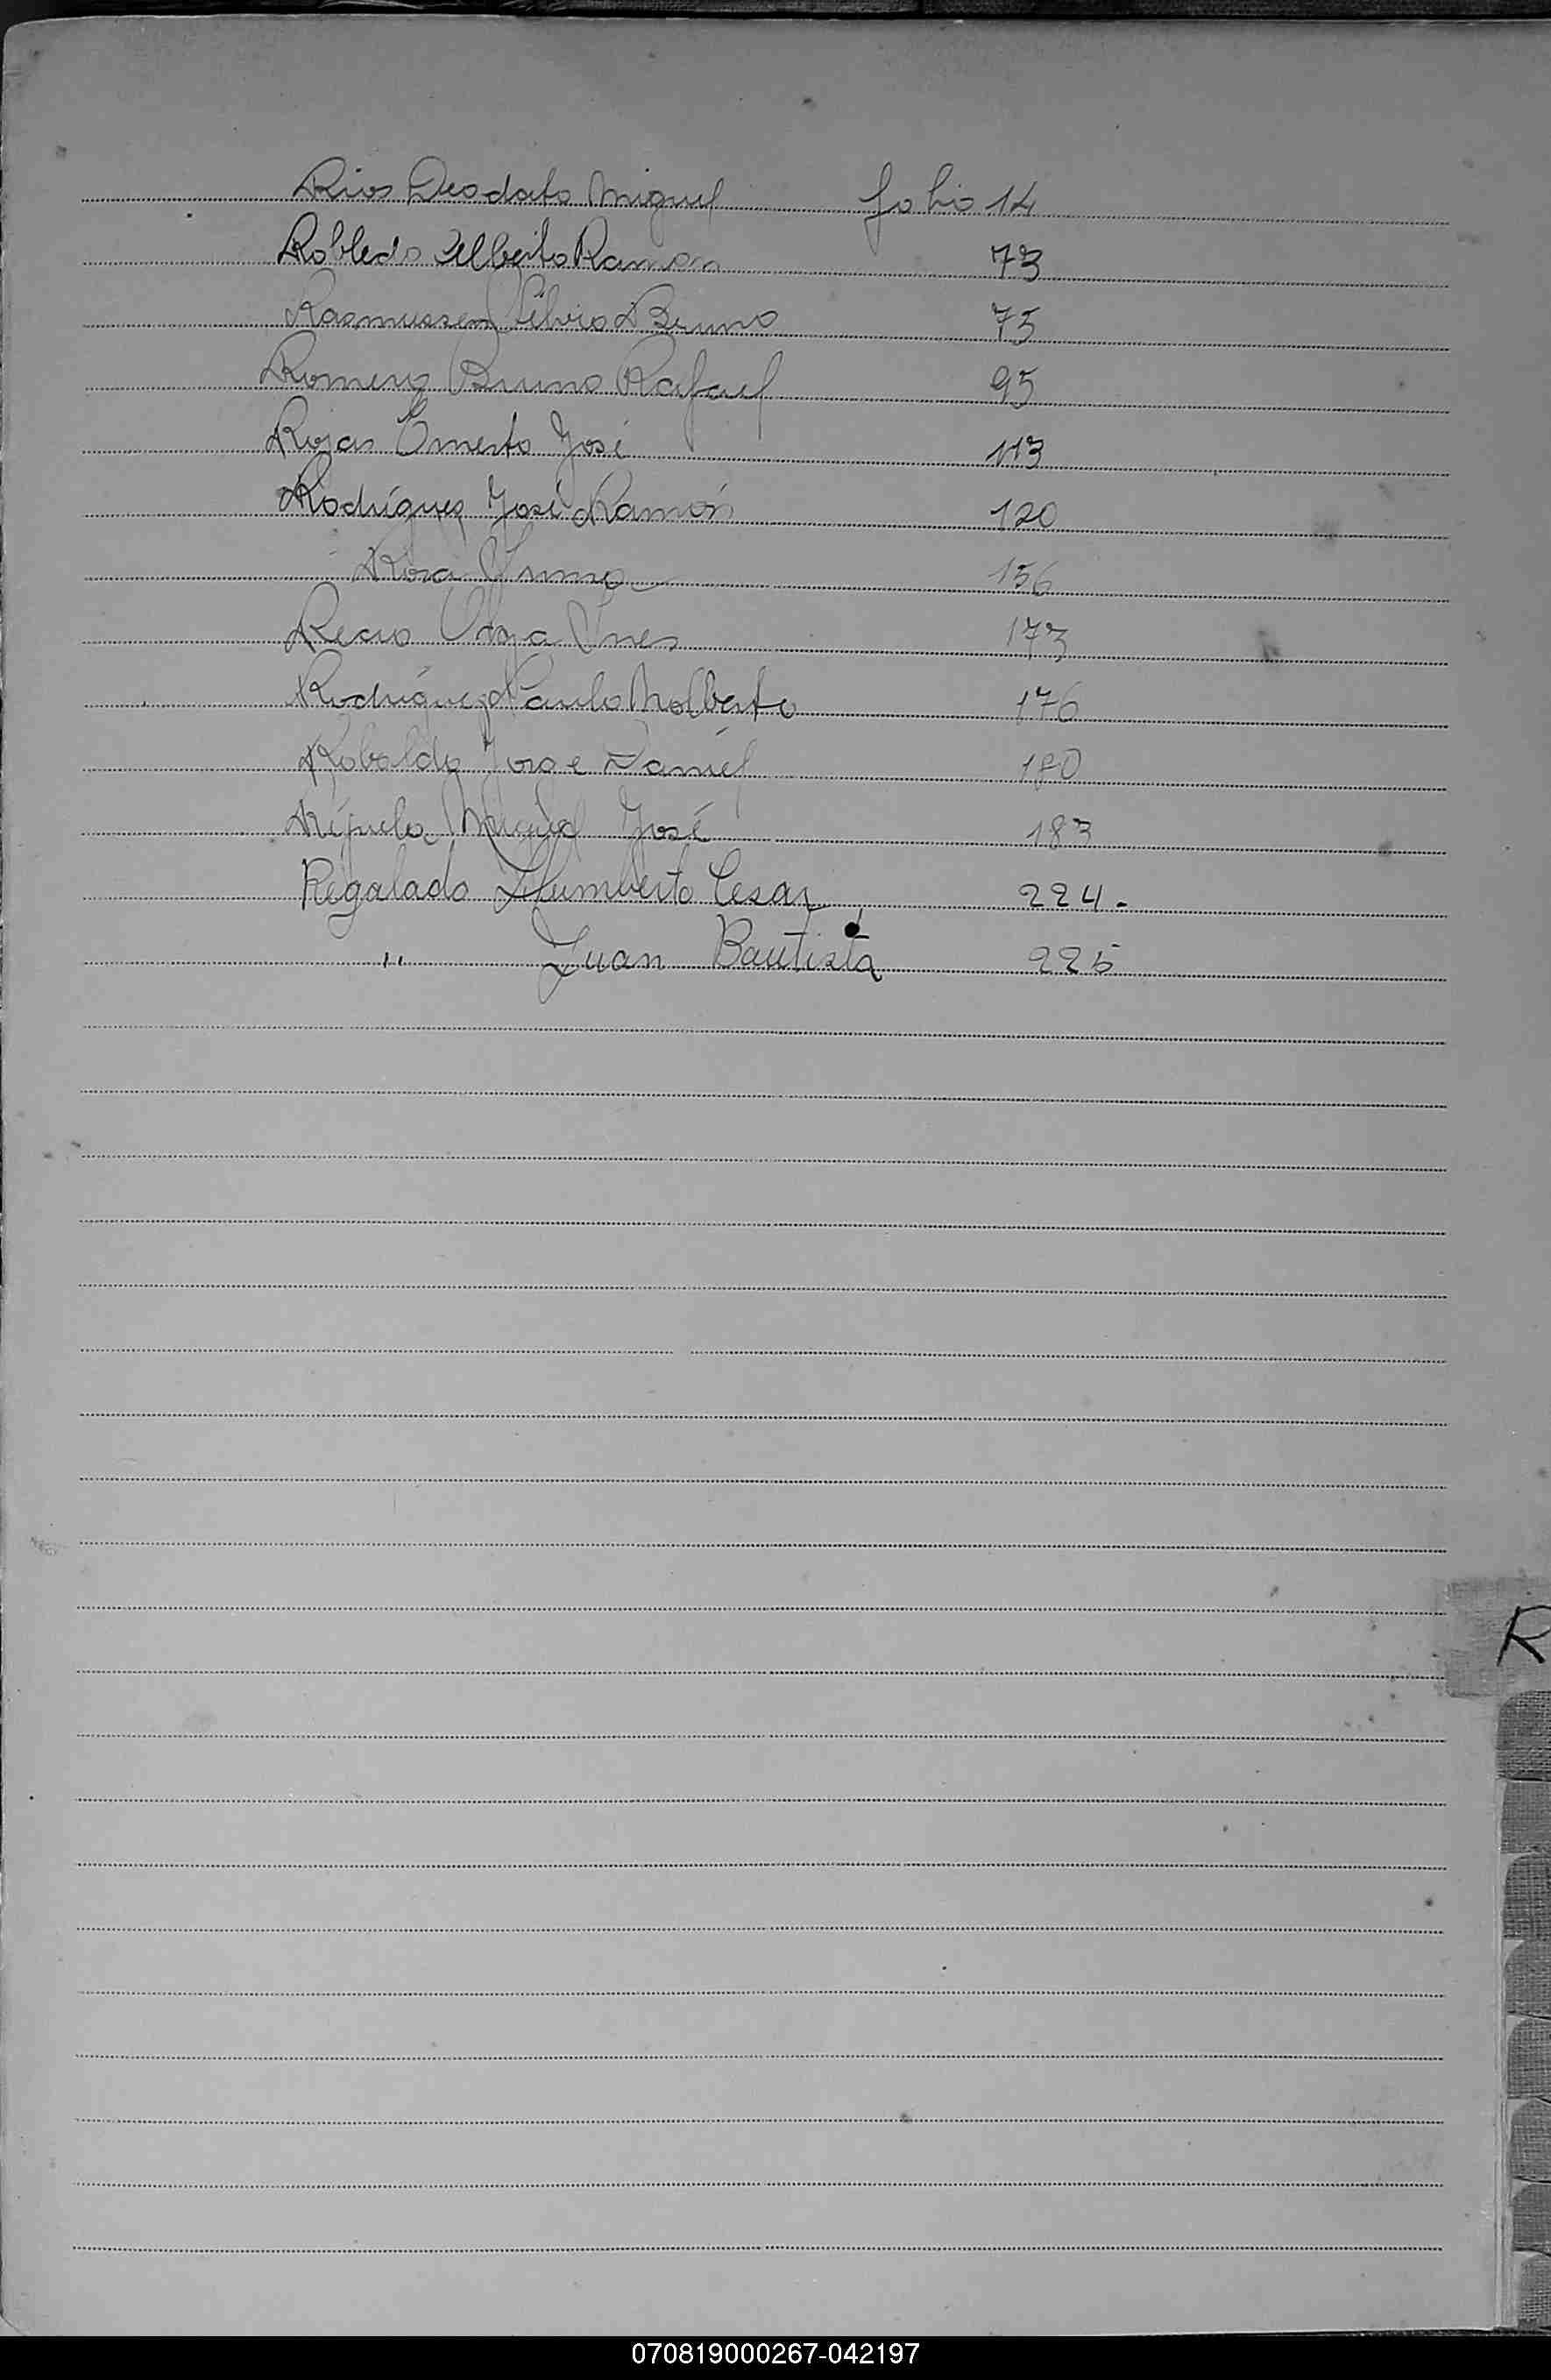 Rios Deodato Miguel folio 14
Robledo Alberto Ramon 73
Rasmussen Silvio Bruno 75
Romero Bruno Rafael 95
Rojas Ernesto José 113
Rodríguez José Ramón 120
Rosa 156
Recio Olga Ines 173
Rodriguez Paulo Nolberto 176
Robaldo Jorge Daniel 180
Miguel José 183
Regalado Humberto Cesar 224.
" Juan Bautista 225
R
070819000267-042197